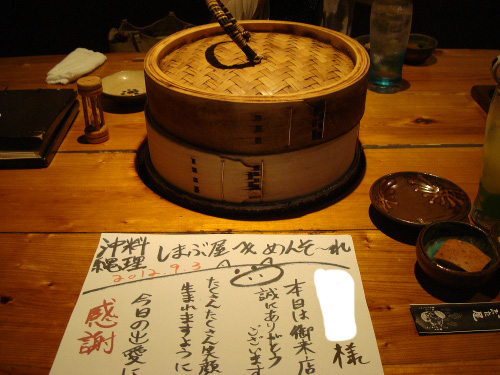 沖縄料理 しまぶ屋へ めんそ～れ
2012.9.3
様
本日は御来店
誠にありがとう
ございます
たくさんたくさん笑顔
生まれますように
今日の出愛に
感謝